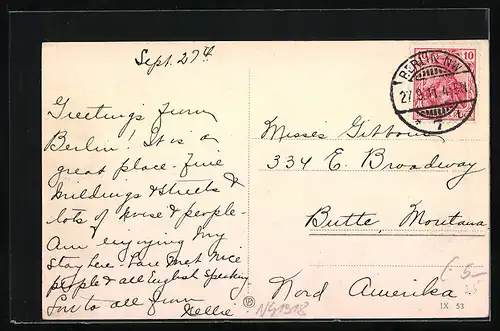 Sept. 27th
Greetings from
Berlin! It is a
great place - fine
buildings & streets &
lots of noise & people -
Am enjoying my
stay here - have met nice
people & all English speaking.
Love to all from
Nellie
Misses Gibbons
334 E. Broadway
Butte, Montana
Nord Amerika
10
BERLIN NW
27.9.11.4-5N
7
NG1318
IX 53